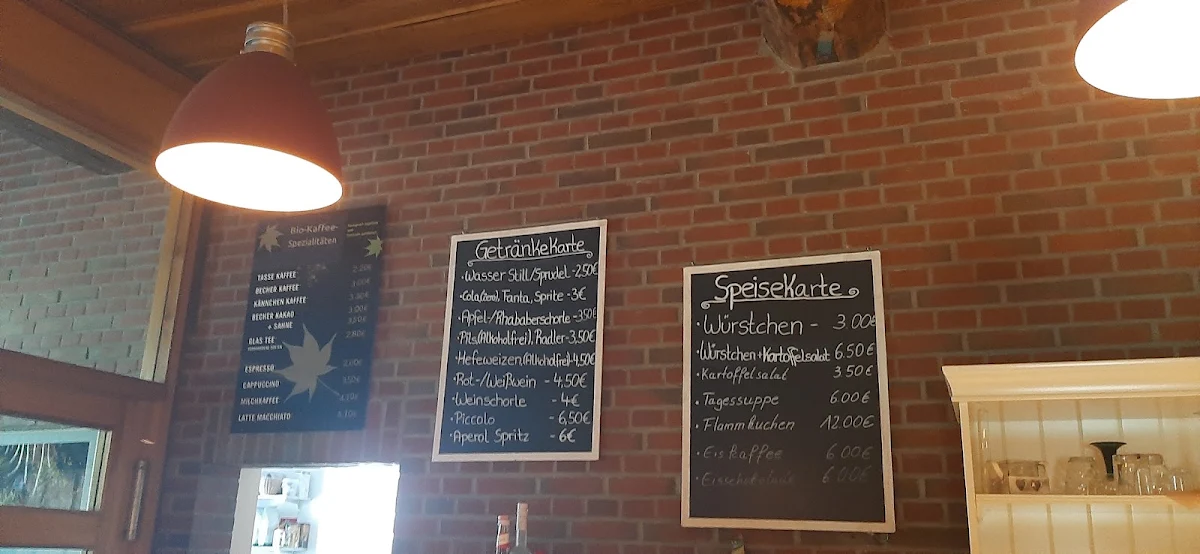 Bio-Kaffee-
Spezialitäten
TASSE KAFFEE
BECHER KAFFEE
KÄNNCHEN KAFFEE
BECHER KAKAO
+ SAHNE
GLAS TEE
ESPRESSO
CAPPUCCINO
MILCHKAFFEE
LATTE MACCHIATO
Getränkekarte
·Wasser Still/Sprudel -2,50€
·Cola(zero), Fanta, Sprite -3€
·Apfel-/Rhababerschorle -3,50€
·Pils(Alkoholfrei), Radler-3,50€
·Hefeweizen(Alkoholfrei)-4,50€
·Rot-/Weißwein - 4,50€
·Weinschorle - 4€
·Piccolo - 6,50€
·Aperol Spritz - 6€
Speisekarte
·Würstchen - 3.00€
·Würstchen+Kartoffelsalat 6.50€
·Kartoffelsalat 3.50€
·Tagessuppe 6.00€
·Flammkuchen 12.00€
·Eiskaffee 6.00€
·Eisschokolade 6.00€